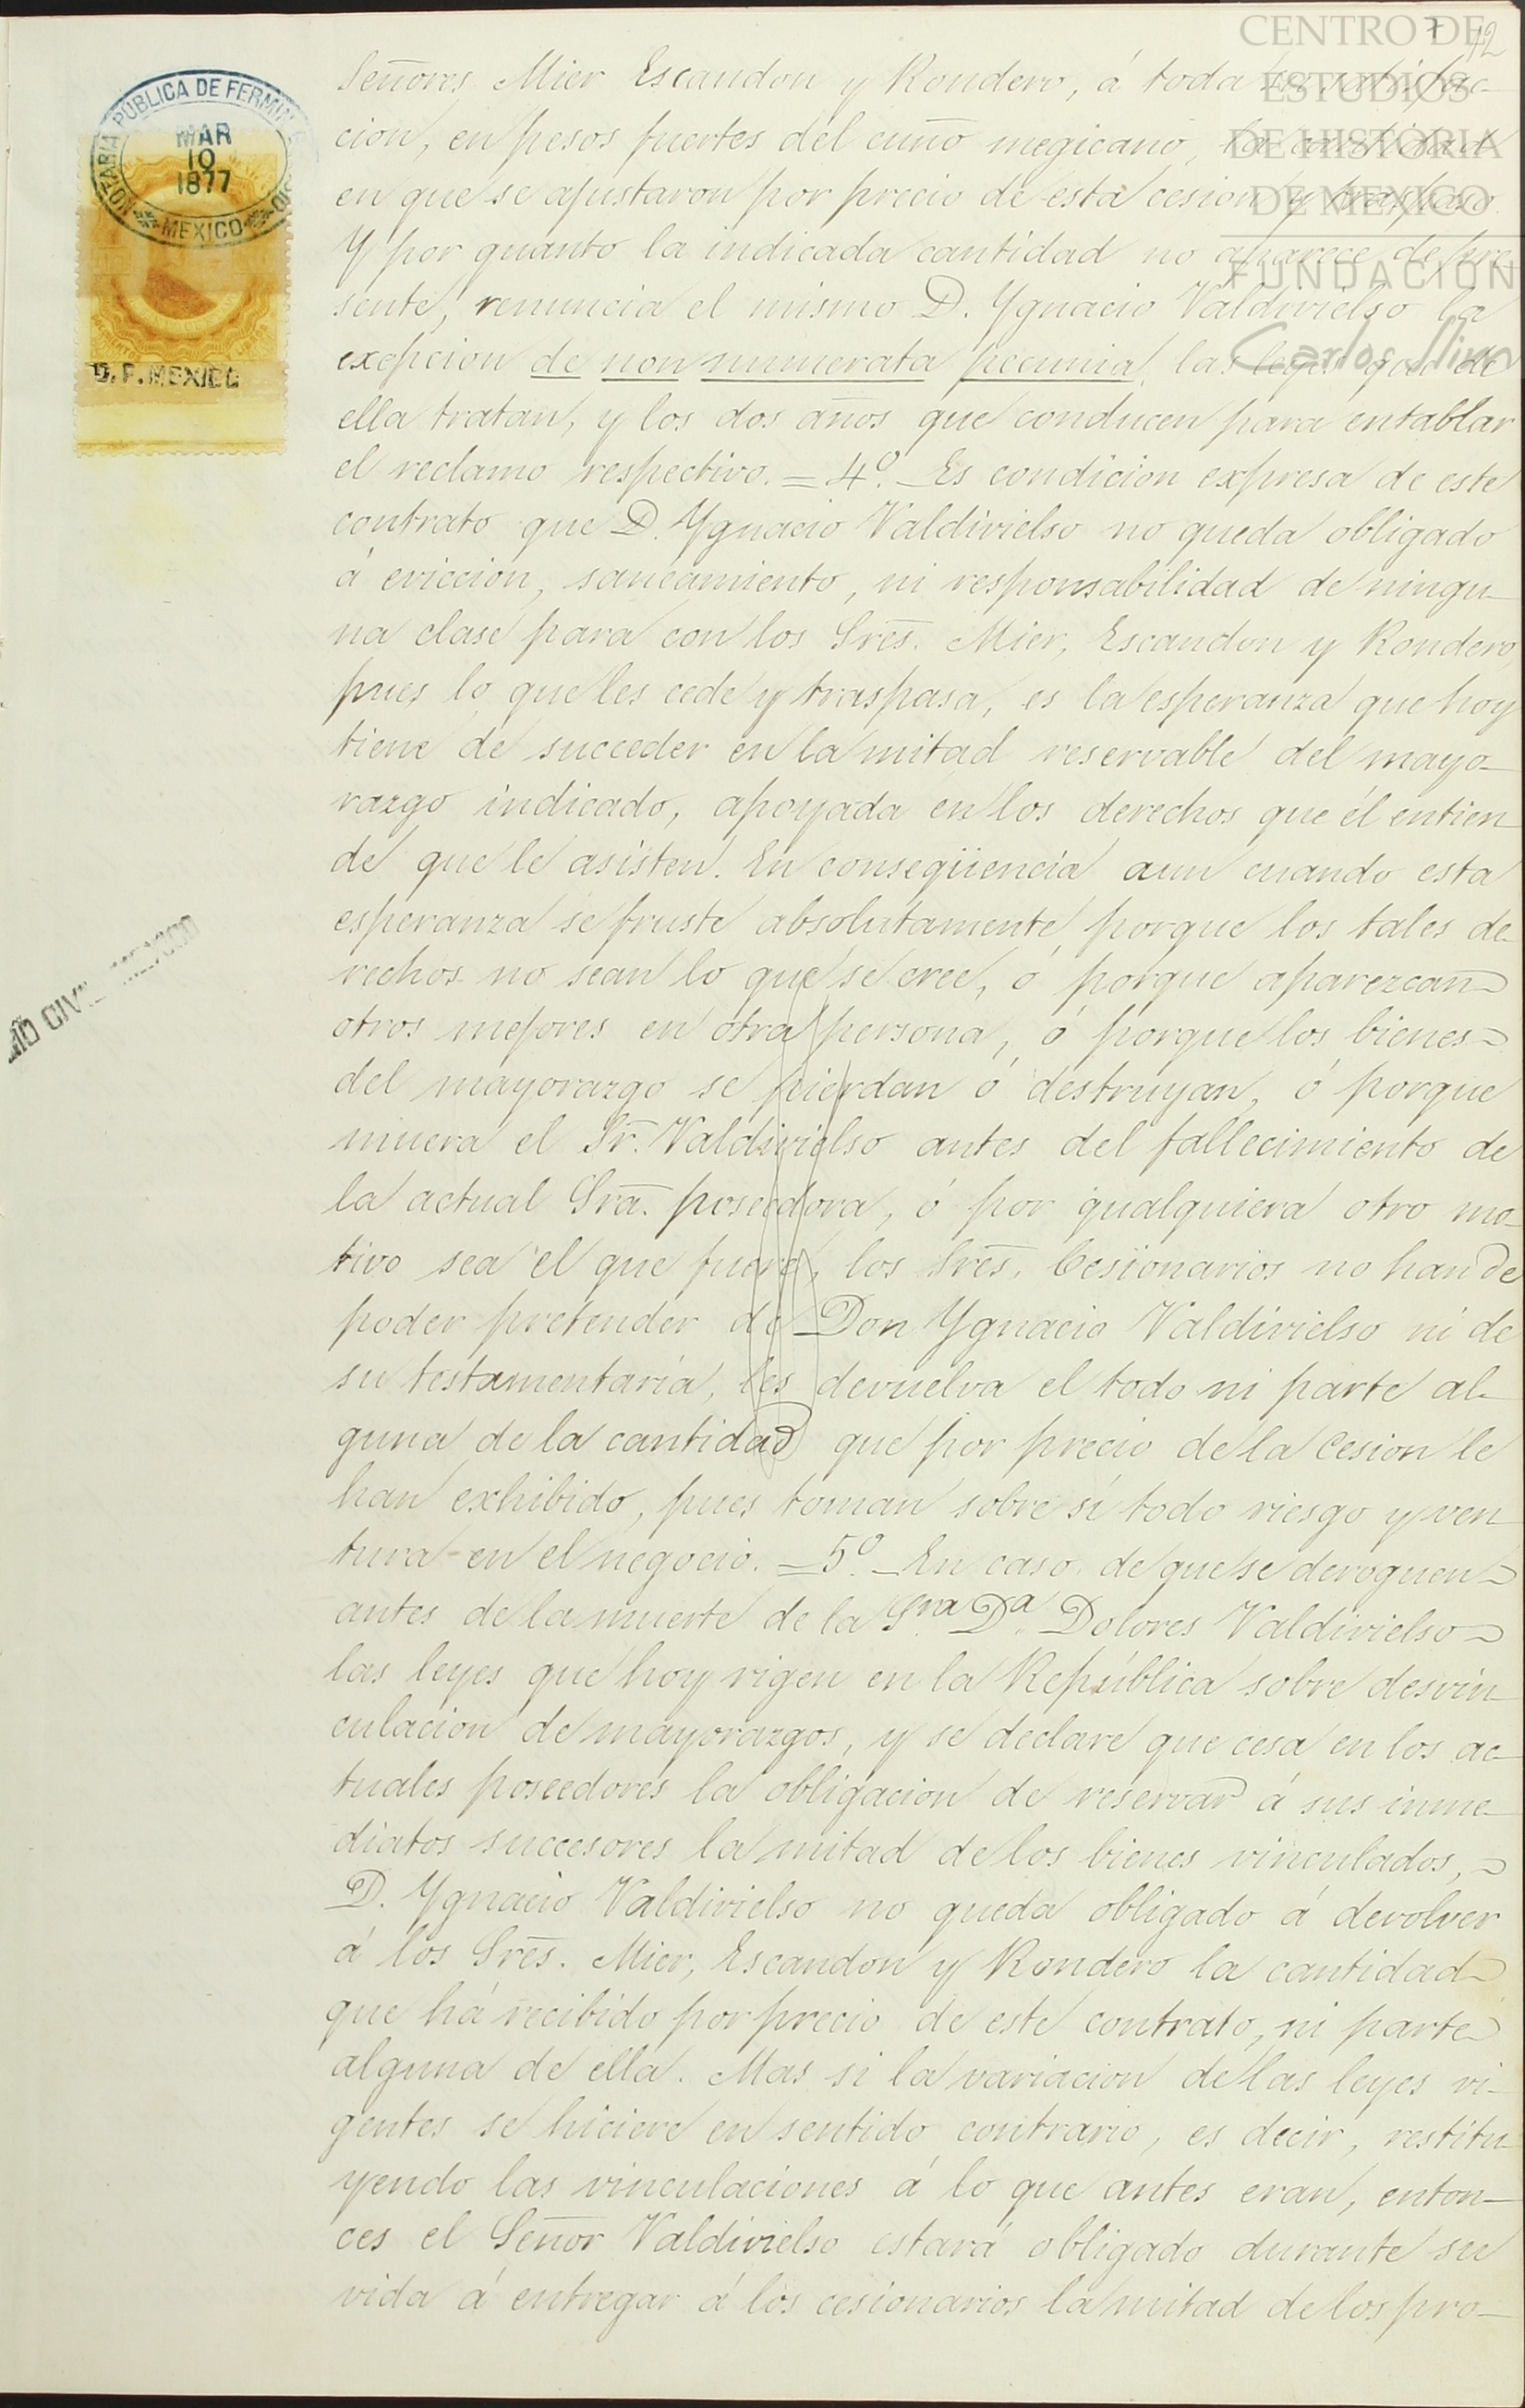 CENTRO DE
ESTUDIOS
DE HISTORIA
DE MEXICO
FUNDACION
Carlos Slim
7 12
NOTARIA PUBLICA DE FERMIN
MAR
10
1877
MEXICO
D. F. MEXICO
CIVIL MEXICO
Señores Mier Escandon y Rondero, á toda su satisfac-
cion, en pesos fuertes del cuño megicano, la cantidad
en que se ajustaron por precio de esta cesion y traspaso.
Y por quanto la indicada cantidad no aparece de pre
sente, renuncia el mismo D. Ygnacio Valdivielso la
exepcion de non numerata pecunia, las leyes que de
ella tratan, y los dos años que conducen para entablar
el reclamo respectivo. = 4º. _Es condicion expresa de este
contrato que D. Ygnacio Valdivielso no queda obligado
á eviccion, saneamiento, ni responsabilidad de ningu-
na clase para con los Sres. Mier, Escandon y Rondero,
pues lo que les cede y traspasa, es la esperanza que hoy
tiene de succeder en la mitad reservable del mayo-
razgo indicado, apoyada en los derechos que él entien
de que le asisten. En conseqüencia aun cuando esta
esperanza se fruste absolutamente, porque los tales de-
rechos no sean lo que se cree, ó porque aparezcan
otros mejores en otra persona, ó porque los bienes
del mayorazgo se pierdan ó destruyan, ó porque
muera el Sr. Valdivielso antes del fallecimiento de
la actual Sra. poseedora, ó por qualquiera otro mo-
tivo sea el que fuere, los Sres. Cesionarios no han de
poder pretender de Don Ygnacio Valdivielso ni de
su testamentaría, les devuelva el todo ni parte al-
guna de la cantidad que por precio de la Cesion le
han exhibido, pues toman sobre sí todo riesgo y ven
tura en el negocio. = 5º. _En caso de que se deroguen
antes de la muerte de la Sra. Da. Dolores Valdivielso
las leyes que hoy rigen en la República sobre desvin
culacion de mayorazgos, y se declare que cesa en los ac-
tuales poseedores la obligacion de reservar á sus inme-
diatos succesores la mitad de los bienes vinculados,
D. Ygnacio Valdivielso no queda obligado á devolver
á los Sres. Mier, Escandon y Rondero la cantidad
que há recibido por precio de este contrato, ni parte
alguna de ella. Mas si la variacion de las leyes vi-
gentes se hiciere en sentido contrario, es decir, restitu-
yendo las vinculaciones á lo que antes eran, enton-
ces el Señor Valdivielso estará obligado durante su
vida á entregar á los cesionarios la mitad de los pro-